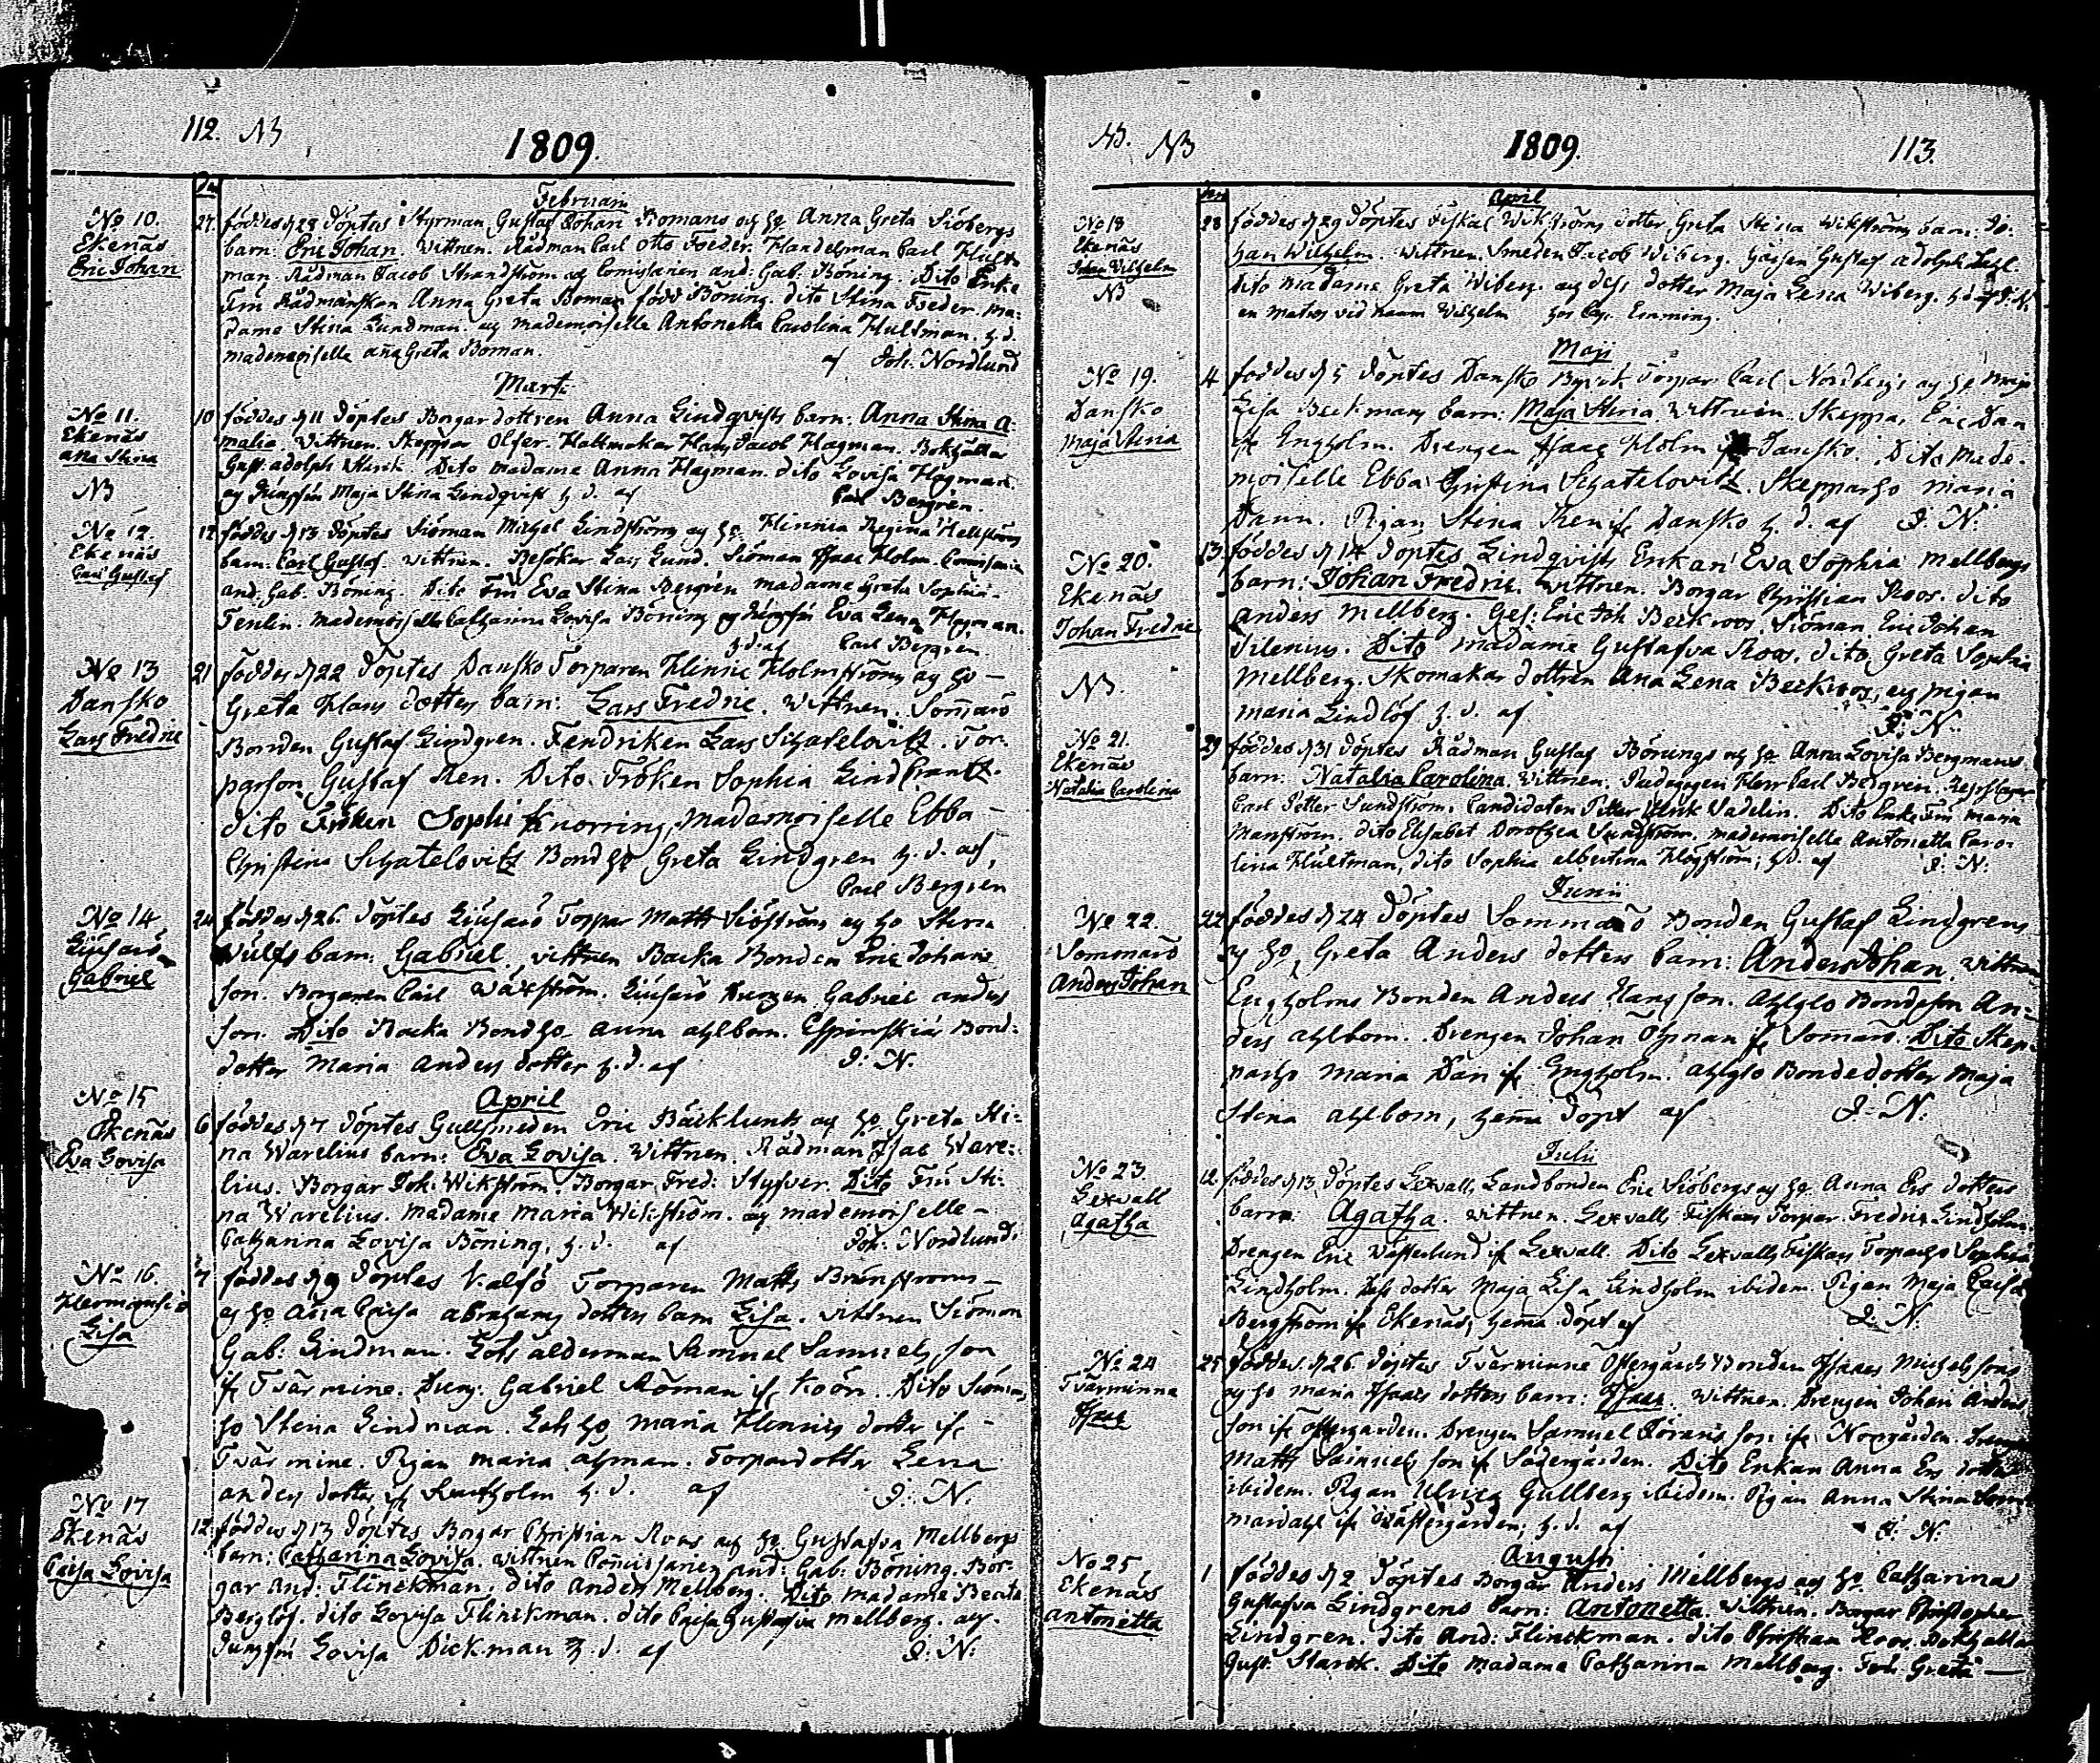 112. NB
1809.
Februari
No 10.
Ekenäs
Eric Johan
27. föddes d 28 döptes Styrman Gustaf Johan Bomans og h: Anna Greta Siöbergs
barn: Eric Johan. Wittnen. Rådman Carl Otto Foeder. Handelsman Carl Hult
man. Rådman Jacob Strandström og Comissarien And: Gab: Böning. Dito Enke
Fru Rådmanskan Anna Greta Boman född Böning. dito Stina Foeder. Ma:
dame Stina Lundman. og mademoiselle Antonetta Carolina Hultman. h. d.
mademoiselle Aña Greta Boman. af Joh: Nordlund
Marti
No 11.
Ekenäs
Ana Stina
NB
10 föddes d 11 döptes Borgardottren Anna Lindqvists barn: Anna Stina A:
malia. Wittnen. Skeppar Hattmakar Hans Jacob Hagman. Bokhållar
Gust: Adolph Dito madame Anna Hagman. dito Lovisa Hagman.
og Jungfru Maja Stina Lindqvist h. d. af Carl Bergren.
No 12.
Ekenäs
Carl Gustaf
12 föddes d 13 döptes Siöman Michel Lindström og h: Hinrica Regina Hellström
barn: Carl Gustaf. Wittnen. Besökar Lars Lund. Siöman Isaac Holm. Comissarie
And. Gab: Böning. Dito Fru Eva Stina Bergren madame Greta Sophia
Tenlin. Mademoiselle Catharina Lovisa Böning og Jungfru Eva Lena Hagman.
h. d. af Carl Bergren.
No 13
Dansko
Lars Fredric
21 föddes d 22 döptes Dansko Torparen Hinric Holmströms og h:
Greta Hans dotters barn: Lars Fredric. Wittnen. Somarö
Bonden Gustaf Lindgren. Fendriken Lars Schatelovitz. Tor:
parson Gustaf Ren. Dito. Fröken Sophia Lindcrantz.
dito Fröken Sophi Knorring, Mademoiselle Ebba
Christina Schatelovitz Bond h: Greta Lindgren h. d. af,
Carl Bergren
No 14
Gabriel
24 föddes d 26 döptes Torpar Matts Siöström og h: Stina
Wulfs barn: Gabriel, vittnen Backa Bonden Eric Johans
son. Borgaren Carl Wäxström. Drengen Gabriel Anders
son. Dito Backa Bond h: Anna Ahlbom. Espinskiär Bond:
dotter Maria Anders dotter h. d. af J: N.
April
No 15
Ekenäs
Eva Lovisa
6 föddes d 7 döptes Gullsmeden Eric Bäcklunds og h: Greta Sti:
na Warelius barn: Eva Lovisa. Wittnen. Rådman Isac Ware:
lius. Borgar Joh: Wikström. Borgar Fred: Styfver. Dito Fru Sti:
na Warelius. Madame Maria Wikström. og mademoiselle
Catharina Lovisa Böning, h. d. af Joh: Nordlund.
No 16.
Hermansö
Lisa
7 föddes d 9 döptes Valsö Torparen Matts Brunströms
og h: Aña Caisa Abrahams dotters barn Lisa. vittnen Siöman
Gab: Lindman. Lots ålderman Samuel Samuels son
if Tvärmine. Dreng: Gabriel Åman if Koön. Dito Siömans
h: Stena Lindman. Lots h: Maria Henrics dotter if
Tvärmine. Pigan Maria Åhman. Torpardotter Lena
Anders dotter if h. d. af J: N.
No 17
Ekenäs
Caisa Lovisa
12 föddes d 13 döptes Borgar Christian Roos og h: Gustafva Mellbergs
barn: Catharina Lovisa. vittnen Comissarien And: Gab: Böning. Bor:
gar And: Flinckman. dito Anders Mellberg. Dito madame Beata
Berglöf. dito Lovisa Flinckman. dito Caisa Gustafva Mellberg. og
Jungfru Lovisa Dickman h. d. af J: N:
NB. NB
1809.
113.
April
No 18
Ekenäs
Johan Vilhelm
NB
28 föddes d 29 döptes Fiskal Wikströms dotter Greta Stina Wikströms barn: Jo:
han Wilhelm. Wittnen. Smeden Jacob Wiberg. Gäsen Gustaf Adolph
dito madame Greta Wiberg. og dess dotter Maja Lena Wiberg. h. d. af J. N.
en matros vid namn Wilhelm
Maji
No 19.
Dansko
Maja Stina
4 föddes d 5 döptes Dansko Torpar Carl Nordbergs og h: Maja
Lisa Beckmans barn: Maja Stina. Wittnen. Skeppar Eric Dan
if Engholm. Drengen Isaac Holm if Dansko. Dito Made:
moiselle Ebba Christina Schatelovitz. Skeppars h: Maria
Dann. Pigan Stina Ren if Dansko h. d. af J: N.
No 20.
Ekenäs
Johan Fredric
NB.
13 föddes d 14 döptes Lindqvists Enkan Eva Sophia Mellbergs
barn: Johan Fredric. Wittnen. Borgar Christian Roos. dito
Anders Mellberg. Ges: Eric Joh Beckroos. Siöman Eric Johan
Silenius. Dito madame Gustafva Roos. dito Greta Sophia
Mellberg. Skomakar dottren Ana Lena Beckroos, og pigan
Maria Lindlöf h. d. af J: N.
No 21.
Ekenäs
Natalia Carolina
29 föddes d 31 döptes Rådman Gustaf Bönings og h: Anna Lovisa Bergmans
barn: Natalia Carolina. Wittnen. Pedagogen Herr Carl Bergren. Repslagar
Carl Petter Sundström. Candidaten Petter Ulrik Sadelin. Dito Enke Fru Maria
Manström. dito Elisabet Dorothea Sundström. mademoiselle Antonetta Caro:
lina Hultman, dito Sophia Albertina Högström, h. d. af J: N:
Junii
No 22.
Sommarö
Anders Johan
22 föddes d 24 döptes Sommarö Bonden Gustaf Lindgrens
og h: Greta Anders dotters barn: Anders Johan. Wittnen
Engholms Bonden Anders Hans son. Ahlglo Bondeson An:
ders Ahlbom. Drengen Johan Öhman if Somarö. Dito Skep:
pars h: Maria Dan if Engholm. Ahlglo Bondedotter Maja
Stina Ahlbom, hema döpt af J: N:
Julii
No 23.
Lexvall
Agatha
12 föddes d 13 döptes Lexvall Landbonden Eric Siöbergs og h: Anna Ers dotters
barn: Agatha. Wittnen. Lexvalls Fiskars Torpar Fredric Lindholm.
Drengen Eric Västerlund if Lexvall. Dito Lexvalls Fiskars Torpars h: Sophia
Lindholm. dess dotter Maja Lisa Lindholm ibidem. Pigan Maja Caisa
Bergström if Ekenäs, hema döpt af J: N.
No 24
Tvärminna
Isaac
25 föddes d 26 döptes Tvärminne Östergårds Bonden Isaacs Michels sons
og h: Maria Isaacs dotters barn: Isaac. Wittnen. Drengen Johan Anders
son if Östergården. Drengen Samuel Görans son if Norrgården.
Matts Samuels son if Södergården. Dito Enkan Anna Ers dotter
ibidem. Pigan Ulrica Gullberg ibidem. Pigan Anna Stina Som
mardahl if Västergården, h. d. af J: N:
Augusti
No 25
Ekenäs
Antonetta
1 föddes d 2 döptes Borgar Anders Mellbergs og h: Catharina
Gustafva Lindgrens barn: Antonetta. Wittnen. Borgar Christopher
Lindgren. dito And: Flinckman. dito Christian Roos. Bokhållar
Gust. Starck. Dito madame Catharina Mellberg. Fru Greta